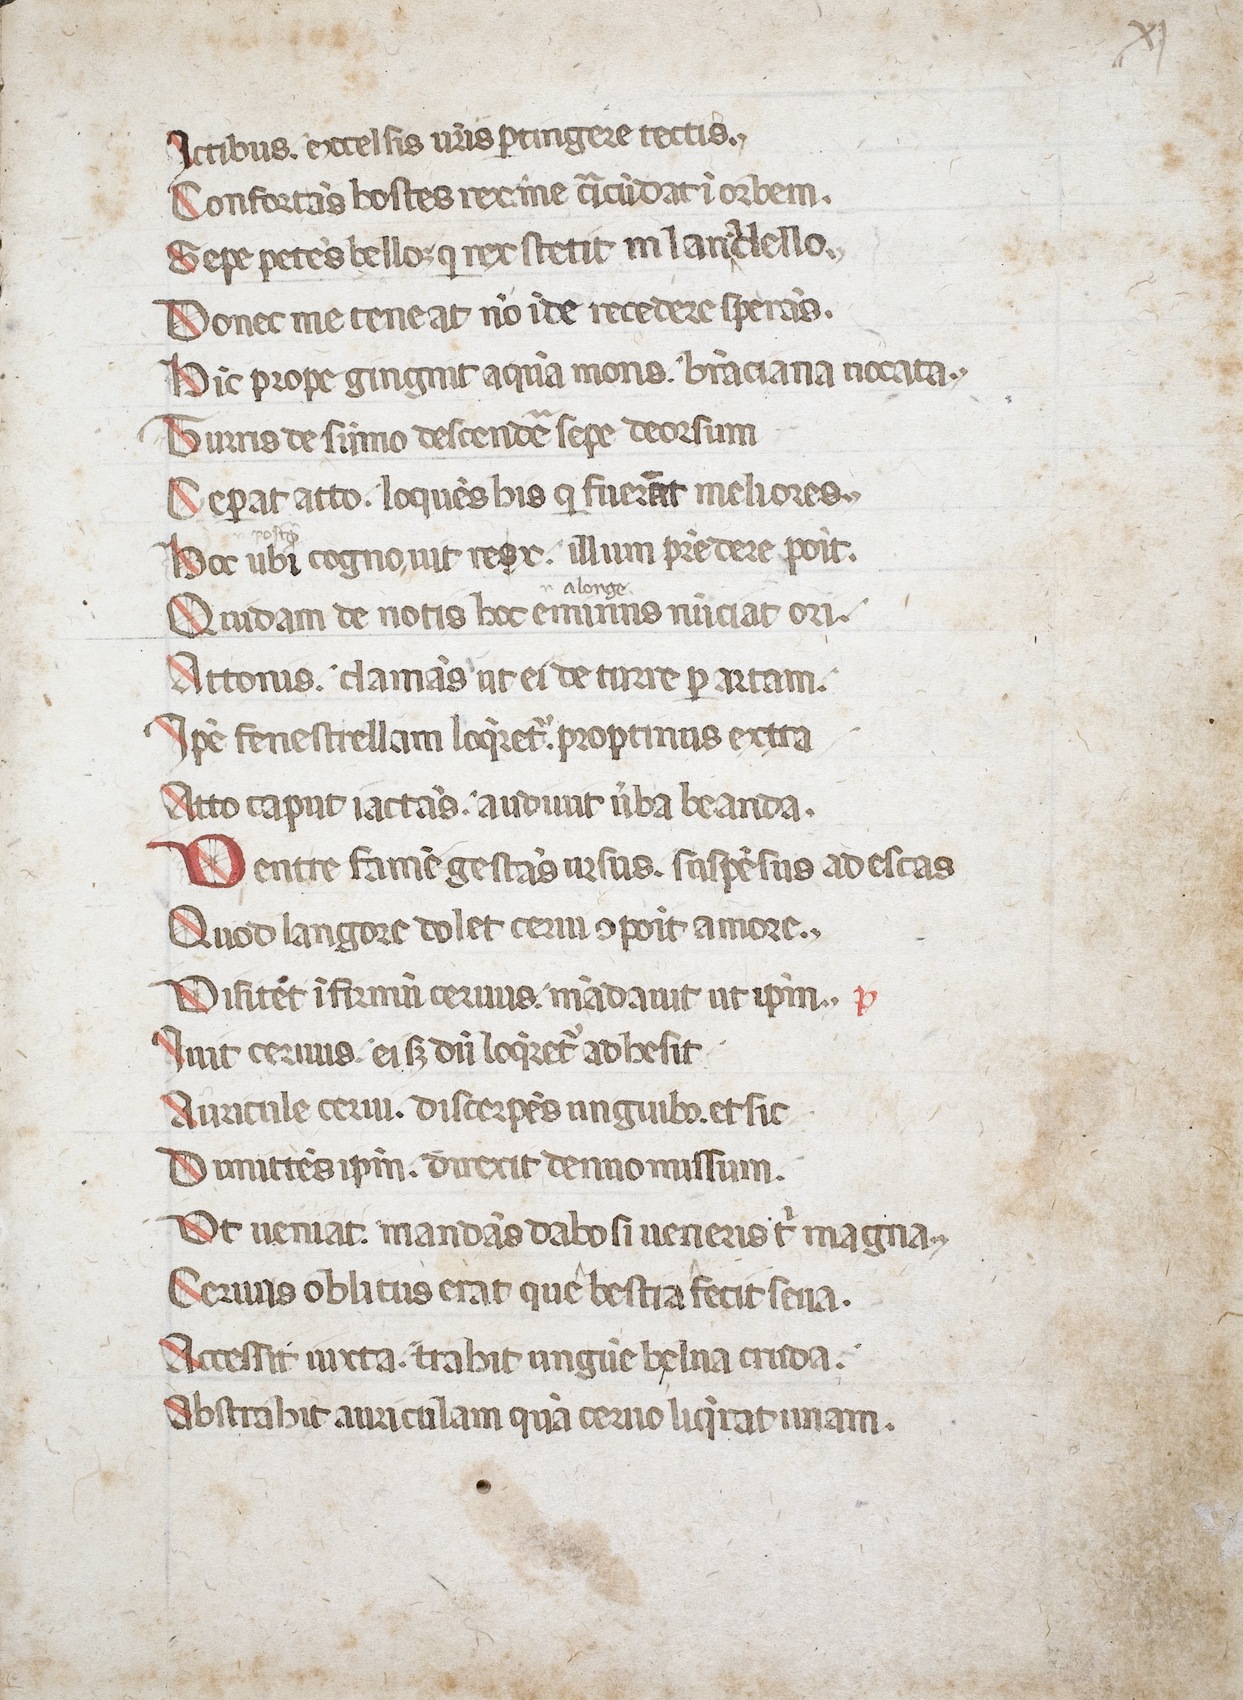 xj
Ictibus. excelsis ur̄is ꝑtingere tectis.
Confortās hostes rex me c̄icūdat ī orbem.
Sepe petēs bello: q rex stetit in lancello.
Donec me teneat nō īde recedere sperās.
Hic prope gingnit aquā mons. brāciana uocata.
Turris de sūmo descendēs sepe deorsum
Ceꝑat atto. loquēs his q fuerāt meliores.
n postq̄
Hoc ubi cognouit rex. illum prēdere poīt.
n alonge
Quidam de notis hoc eminus nūciat ori.
Attonis. clamās ut ei de turre ꝑ artam.
Ip̄e fenestrellam loq̄ret᷑. proptinus extra
Atto caput iactās. audiuit ūba beanda.
Ventre famē gestās ursus. suspēsus ad escas
Quod langore dolet ceruu ꝯpoīt amore.
Visitet īfirmū ceruus. mādauit ut ip̄m. p
Iuit ceruus. ei sꝫ dū loq̄ret᷑ adhesit
Auricule cerui. discerpēs unguibꝯ. et sic
Dimittēs ip̄m. direxit denuo missum.
Ut ueniat. mandās dabo si ueneris tⁱ magna.
Ceruus oblitus erat que bestia fecit seua.
Accessit iuxta. trahit ungue belua cruda.
Abstrahit auriculam quā ceruo liq̄rat unam.